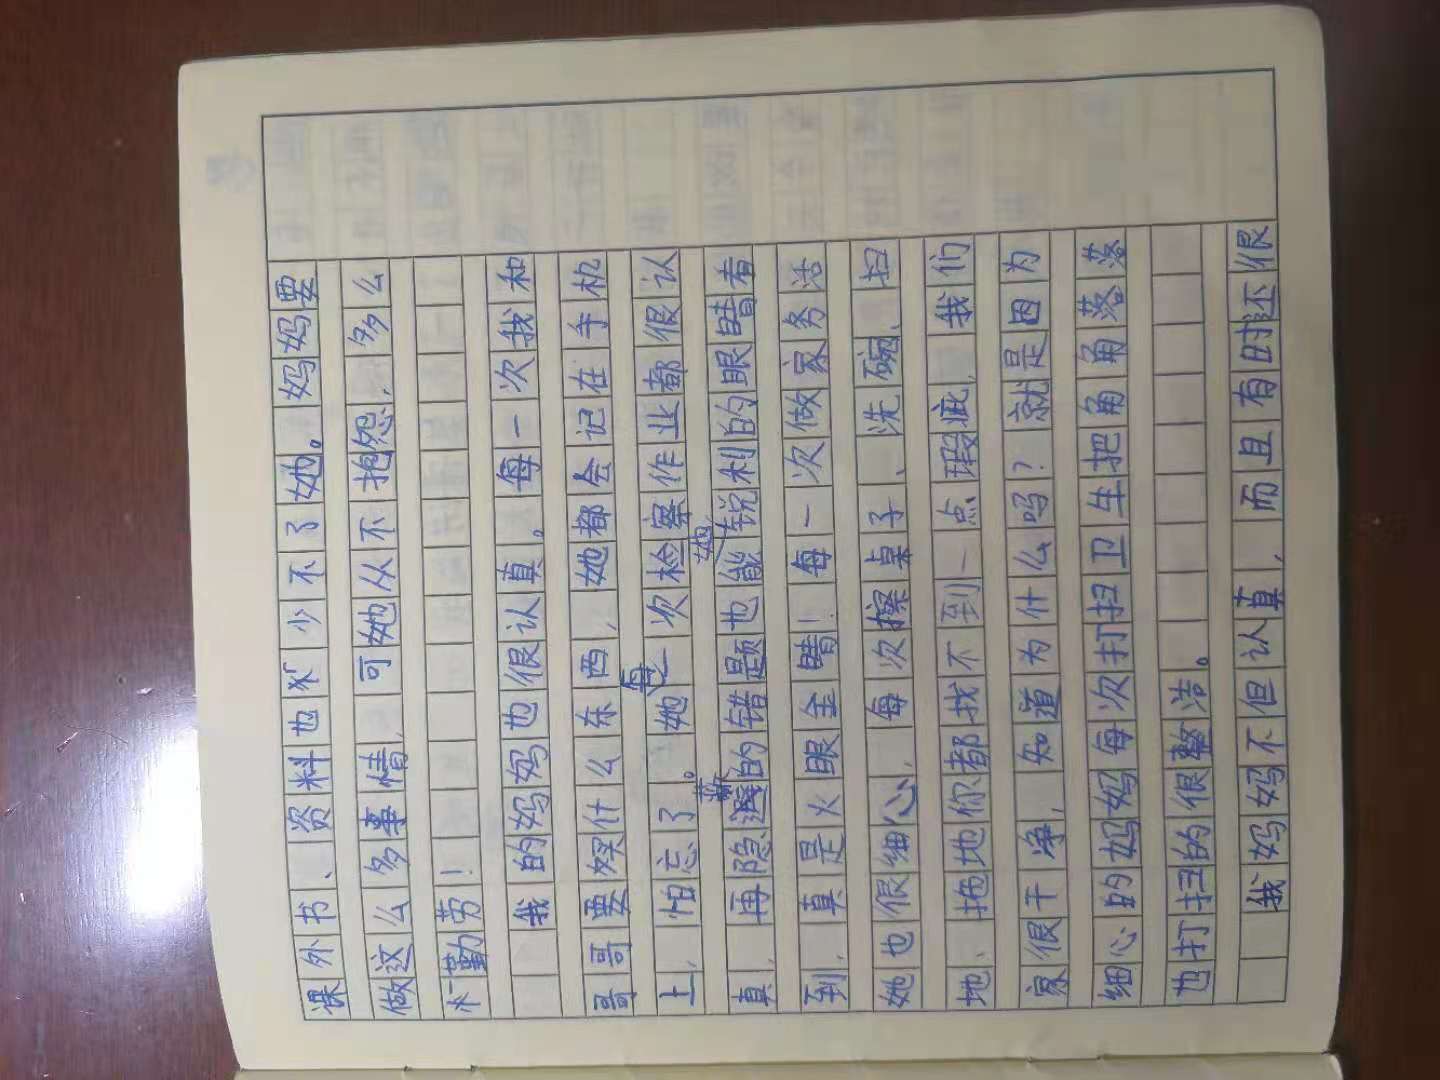 课外书、资料也必少不了她。妈妈要
做这么多事情，可她从不抱怨，多么
忄勤劳！
我的妈妈也很认真。每一次我和
哥哥要娱什么东西，她都会记在手机
上，怕忘了。她每一次检察作业都很认
真，再隐蔽的错题也能她锐利的眼睛看
到，真是火眼金睛！每一次做家务活
她也很细心，每次擦桌子、洗碗、扫
地、拖地你都找不到一点瑕疵，我们
家很干净，知道为什么吗？就是因为
细心的妈妈每次打扫卫生把角角落落
也打扫的很整洁。
我妈妈不但认真，而且有时还很